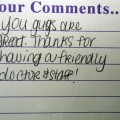 our Comments...
you guys are
great. Thanks for
having a friendly
doctor & staff!